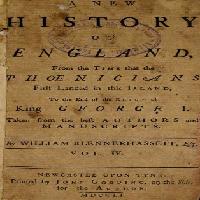 A NEW
HISTORY
OF
ENGLAND,
From the Time that the
PHOENICIANS
First Landed in this ISLAND,
To the End of the Reign of
King GEORGE I.
Taken from the best AUTHORS and
MANUSCRIPTS.
By WILLIAM BLENNERHASSETT, Esq;
VOL. IV.
NEWCASTLE UPON TYNE:
Printed by JOHN GOODING, on the Side,
for the AUTHOR.
MDCCLI